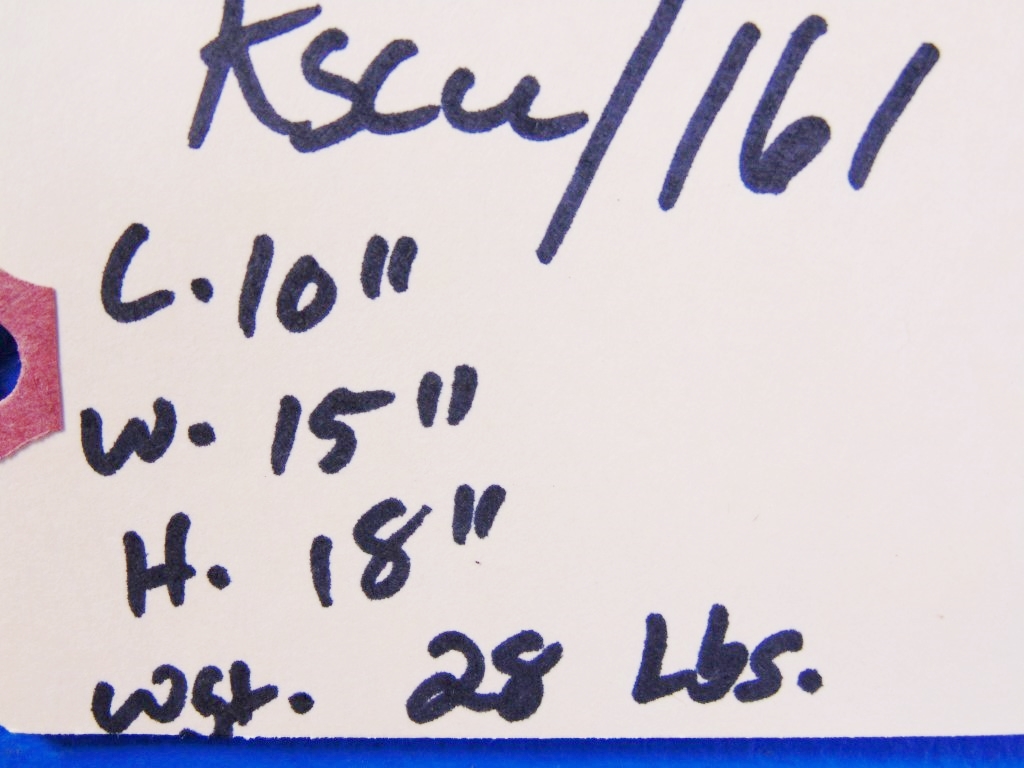 Kscu/161
L. 10"
W. 15"
H. 18"
Wgt. 28 Lbs.